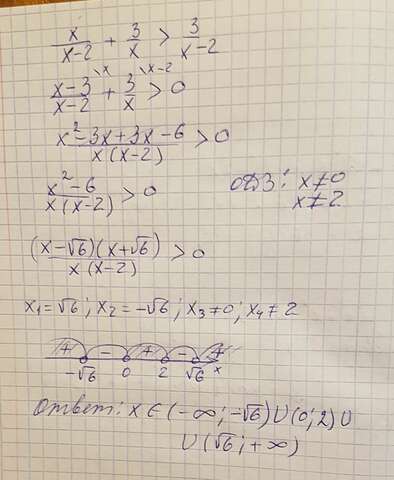 x/(x-2) + 3/x > 3/(x-2)
(x-3)/(x-2) \x + 3/x \x-2 > 0
(x²-3x+3x-6)/(x(x-2)) > 0
(x²-6)/(x(x-2)) > 0 ОДЗ: x≠0
x≠2
((x-√6)(x+√6))/(x(x-2)) > 0
x₁=√6; x₂=-√6; x₃≠0; x₄≠2
+ - + - +
-√6 0 2 √6 x
Ответ: x∈(-∞;-√6)∪(0;2)∪
∪(√6;+∞)